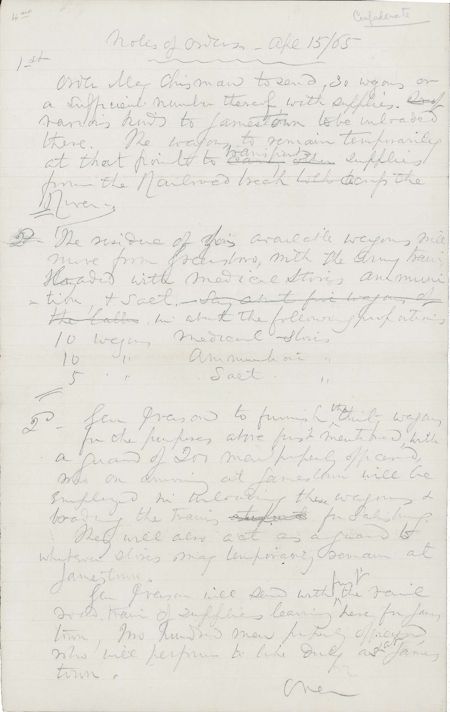 Confederate
Notes of Orders - Apl 15/65
1st
Order Maj Chisman to send, 30 wagons or
a sufficient number thereof, with supplies
various kinds to Jamestown to be unloaded
there. The wagons to remain temporarily
at that point to transport supplies
from the Railroad break across the
River
2d The residue of his available wagons will
move from Greensboro, with the Army train
loaded with medical stores ammuni
tion, & Salt. Say about five wagons of
the latter in about the following proportions
10 wagons medical stores
10 " Ammunition "
5 " Salt "
2d - Gen Iverson to furnish the thirty wagons
for the purposes above first mentioned, with
a guard of 200 men properly officered
who on arriving at Jamestown will be
employed in unloading these wagons &
loading the trains for Salisbury.
They will also act as a guard to
whatever stores may temporarily remain at
Jamestown.
Gen Iverson will send with the first rail
road train of supplies leaving here for James
town, two hundred men properly officered
who will perform the like duty as at James
town.
over